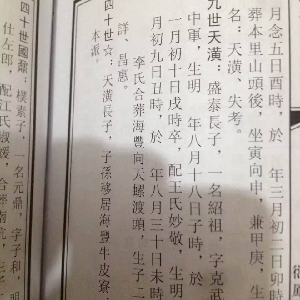 月念五日酉時，於　年三月初二日卯時
葬本里山頭後，坐寅向申，兼甲庚，生
名：天潢、失考。
九世天潢：盛泰長子，一名紹祖，字克武
中軍，生明　年八月十八日子時，於
一月初十日戌時卒，配王氏妙敬，生明
月初九日丑時，於　年八月三十日未時
李氏合葬海豐向天螺渡頭，生子二
詳、昌惠。
四十世☆：天潢長子，子孫移居海豐牛皮寮
本派。
四十世國鼐：樸素子，一名元鼎，字子和，明
仕左郎，配江氏淑媛，合葬南坑，生子